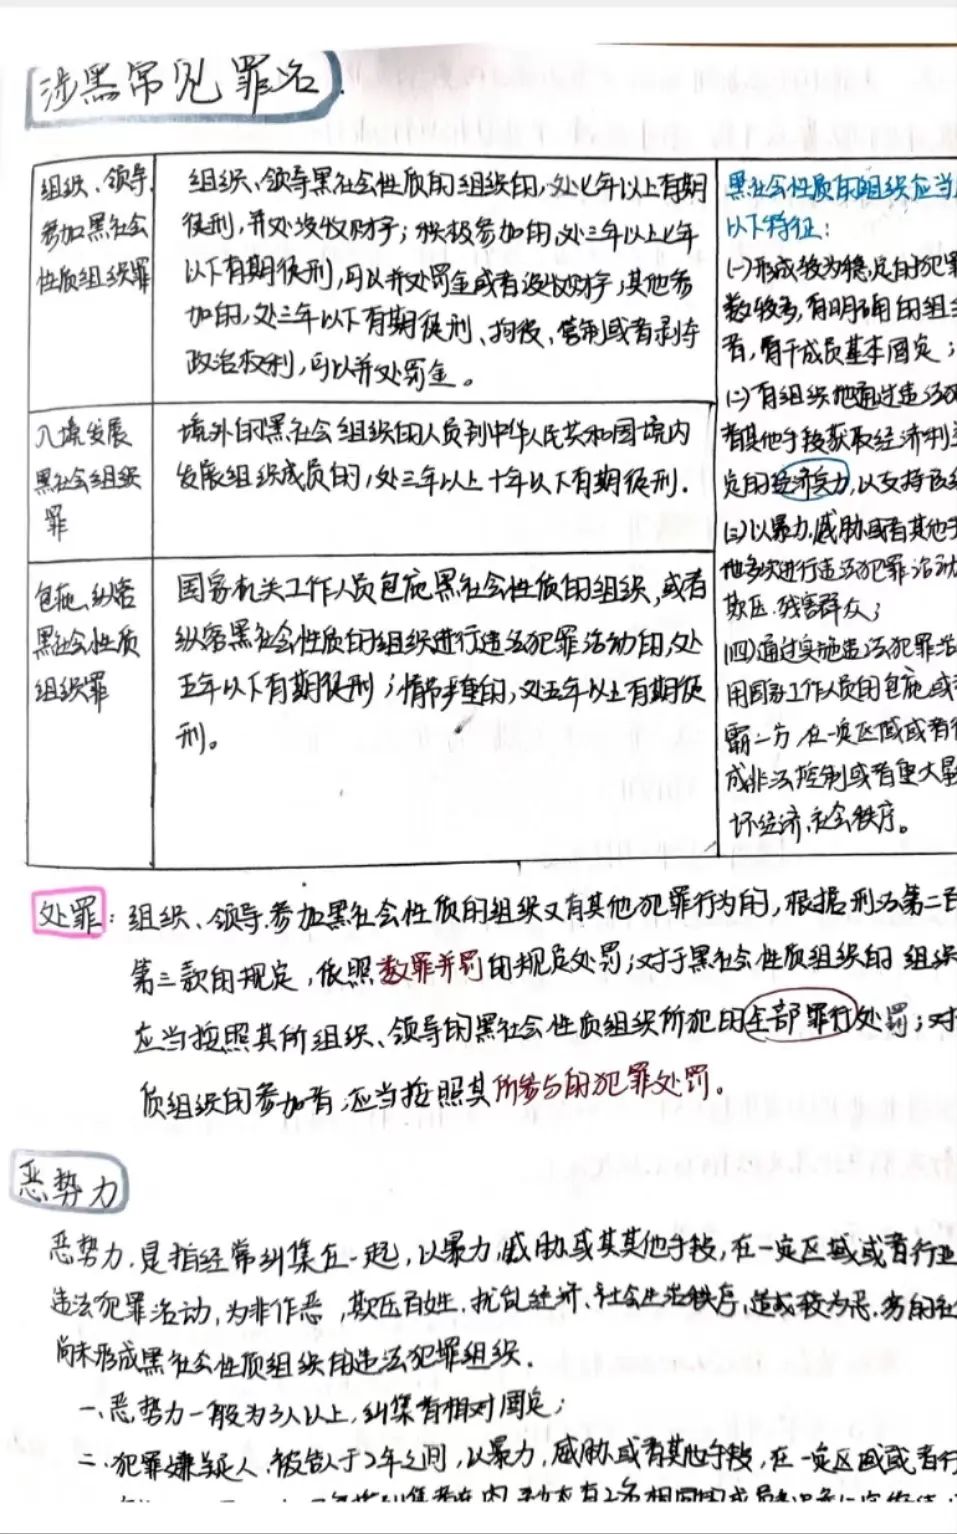 涉黑常见罪名
组织、领导
参加黑社会
性质组织罪
组织、领导黑社会性质的组织的,处七年以上有期
徒刑,并处没收财产;积极参加的,处三年以上七年
以下有期徒刑,可以并处罚金或者没收财产,其他参
加的,处三年以下有期徒刑、拘役、管制或者剥夺
政治权利,可以并处罚金。
入境发展
黑社会组织
罪
境外的黑社会组织的人员到中华人民共和国境内
发展组织成员的,处三年以上十年以下有期徒刑.
包庇、纵容
黑社会性质
组织罪
国家机关工作人员包庇黑社会性质的组织,或者
纵容黑社会性质的组织进行违法犯罪活动的,处
五年以下有期徒刑;情节严重的,处五年以上有期徒
刑。
黑社会性质的组织应当
以下特征:
(一)形成较为稳定的犯罪
数较多,有明确的组
者,骨干成员基本固定;
(二)有组织地通过违法
者其他手段获取经济利
定的经济实力,以支持
(三)以暴力、威胁或者其他
他多次进行违法犯罪活动
欺压、残害群众;
(四)通过实施违法犯罪活
用国家工作人员的包庇或
霸一方,在一定区域或者行
成非法控制或者重大
坏经济、社会秩序。
处罪:组织、领导、参加黑社会性质的组织又有其他犯罪行为的,根据刑法第二百
第三款的规定,依照数罪并罚的规定处罚;对于黑社会性质组织的组织
应当按照其所组织、领导的黑社会性质组织所犯的全部罪行处罚;对
质组织的参加者,应当按照其所参与的犯罪处罚。
恶势力
恶势力,是指经常纠集在一起,以暴力、威胁或其其他手段,在一定区域或者行业
违法犯罪活动,为非作恶,欺压百姓,扰乱经济、社会生活秩序,造成较为恶劣的社
尚未形成黑社会性质组织的违法犯罪组织.
一、恶势力一般为3人以上,纠集者相对固定;
二、犯罪嫌疑人、被告人于2年之间,以暴力、威胁或者其他手段,在一定区域或者行